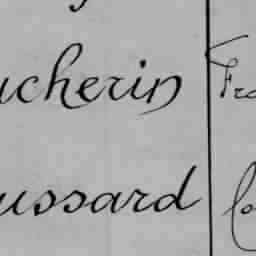 ucherin Fra
ussard Co